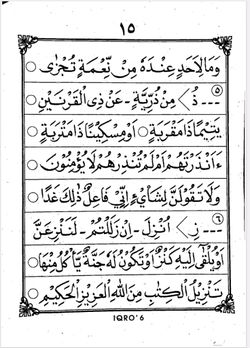 ١٥
وَمَا لِأَحَدٍ عِنْدَهُ مِنْ نِعْمَةٍ تُجْزٰى ○
٥ --- ذُ〉 مِنْ ذُرِّيَّةِ - عَنْ ذِى الْقَرْنَيْنِ
يَتِيْمًا ذَا مَقْرَبَةٍ ○ اَوْ مِسْكِيْنًا ذَا مَتْرَبَةٍ ○
ءَاَنْذَرْتَهُمْ اَمْ لَمْ تُنْذِرْهُمْ لَا يُؤْمِنُوْنَ ○
وَلَا تَقُوْلَنَّ لِشَايْءٍ اِنِّيْ فَاعِلٌ ذٰلِكَ غَدًا ○
٦ --- نِ〉 اُنْزِلَ - اِنْ زَلَلْتُمْ - لَنَنْزِعَنَّ
اَوْ يُلْقٰٓى اِلَيْهِ كَنْزٌ اَوْ تَكُوْنُ لَهُ جَنَّةٌ يَأْكُلُ مِنْهَا ○
تَنْزِيْلُ الْكِتٰبِ مِنَ اللهِ الْعَزِيْزِ الْحَكِيْمِ ○
IQRO' 6